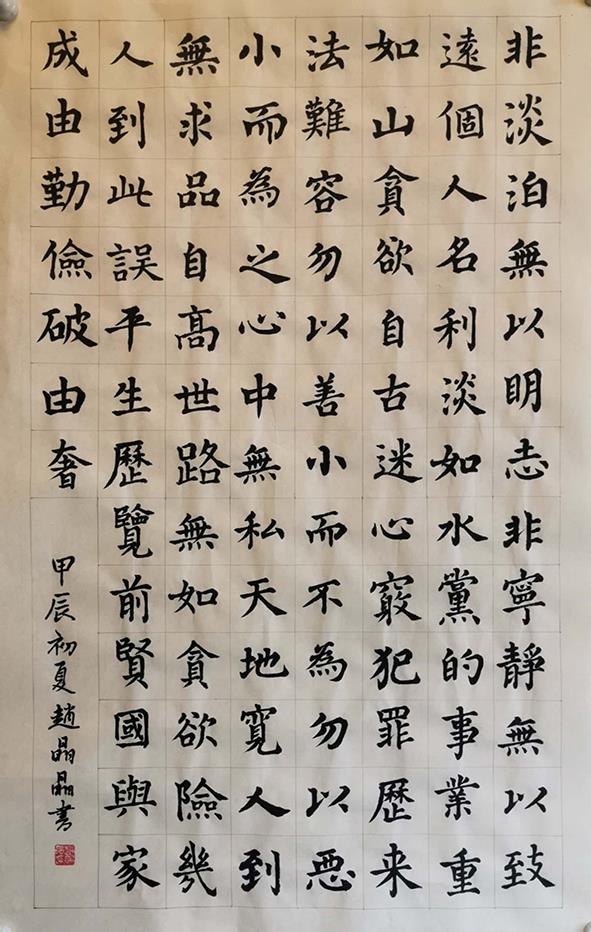 非淡泊無以明志非寧靜無以致
遠個人名利淡如水黨的事業重
如山貪欲自古迷心竅犯罪歷来
法難容勿以善小而不為勿以悪
小而為之心中無私天地寬人到
無求品自高世路無如貪欲險幾
人到此誤平生歷覽前賢國與家
成由勤儉破由奢
甲辰初夏趙晶晶書